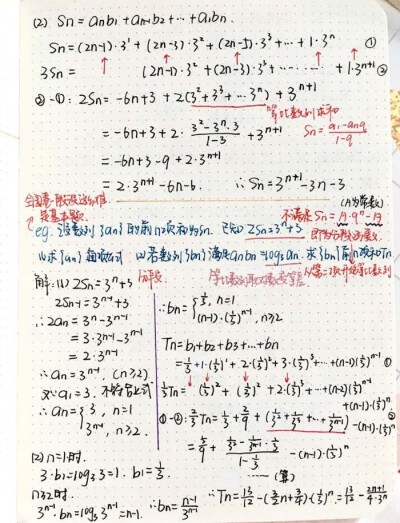 (2) Sn = anb1 + an-1b2 + ··· + a1bn.
Sn = (2n-1)·3¹ + (2n-3)·3² + (2n-5)·3³ + ··· + 1·3ⁿ ①
3Sn = (2n-1)·3² + (2n-3)·3³ + ··· + 1·3ⁿ⁺¹ ②
②-①: 2Sn = -6n+3 + 2(3²+3³+···3ⁿ) + 3ⁿ⁺¹
等比数列求和
= -6n+3 + 2·(3²-3ⁿ·3)/(1-3) + 3ⁿ⁺¹ Sn = (a1-anq)/(1-q)
= -6n+3-9+2·3ⁿ⁺¹
= 2·3ⁿ⁺¹-6n-6. ∴Sn = 3ⁿ⁺¹-3n-3
(A为常数)
是基本题. 不满足 Sn = A·qⁿ-A
eg. 设数列{an}的前n项和为Sn. 已知 2Sn = 3ⁿ+3
(1) 求{an}通项公式 (2) 若数列{bn}满足anbn = log3 an. 求{bn}前n项和Tn
解: (1) 2Sn = 3ⁿ+3
2Sn-1 = 3ⁿ⁻¹+3
∴2an = 3ⁿ-3ⁿ⁻¹
= 3·3ⁿ⁻¹-3ⁿ⁻¹
= 2·3ⁿ⁻¹
∴an = 3ⁿ⁻¹, (n≥2)
又∵a1 = 3. 不符合上式
∴an = { 3, n=1
3ⁿ⁻¹, n≥2.
(2) n=1时.
3·b1 = log3 3 = 1. b1 = 1/3.
n≥2时.
3ⁿ⁻¹·bn = log3 3ⁿ⁻¹ = n-1. ∴bn = (n-1)/3ⁿ⁻¹
∴bn = { 1/3, n=1
(n-1)·(1/3)ⁿ⁻¹, n≥2
Tn = b1+b2+b3+···+bn
= 1/3 + 1·(1/3)¹ + 2·(1/3)² + 3·(1/3)³ + ··· + (n-1)(1/3)ⁿ⁻¹ ①
1/3Tn = (1/3)² + (1/3)² + 2·(1/3)³ + ··· + (n-2)(1/3)ⁿ⁻¹
+(n-1)·(1/3)ⁿ. ②
①-②: 2/3 Tn = 1/3 + 2/9 + (1/3²+1/3³+···+1/3ⁿ⁻¹) -(n-1)·(1/3)ⁿ
= 5/9 + (1/3²-1/3ⁿ⁻¹·1/3)/(1-1/3) -(n-1)·(1/3)ⁿ
······ (算)
∴Tn = 13/12-(3/2n+3/4)·(1/3)ⁿ = 13/12 - (2n+1)/(4·3ⁿ)